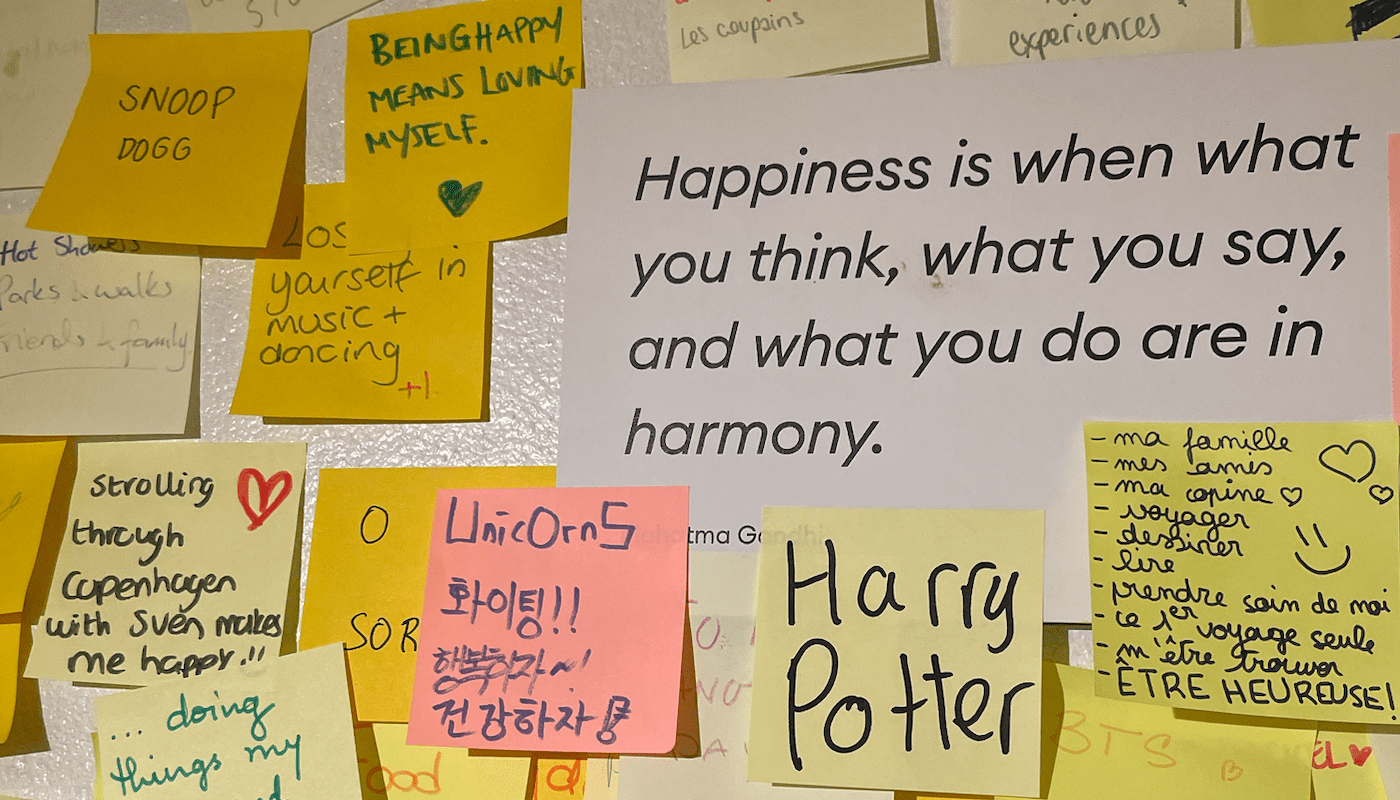 Les coupains
experiences
SNOOP
DOGG
BEING HAPPY
MEANS LOVING
MYSELF.
Happiness is when what
you think, what you say,
and what you do are in
harmony.
tma Gandhi
Hot Showers
Parks & walks
Friends & family
LOS
yourself in
music +
dancing
+1
strolling
through
Copenhagen
with Sven makes
me happy!!
O
SOR
UnicOrnS
화이팅!!
행복하자~!
건강하자
Harry
Potter
- ma famille
- mes amies
- ma copine
- voyager
- dessiner
- lire
- prendre soin de moi
- ce 1er voyage seule
- m'être trouver
- ÊTRE HEUREUSE!
... doing
things my
ood
BTS